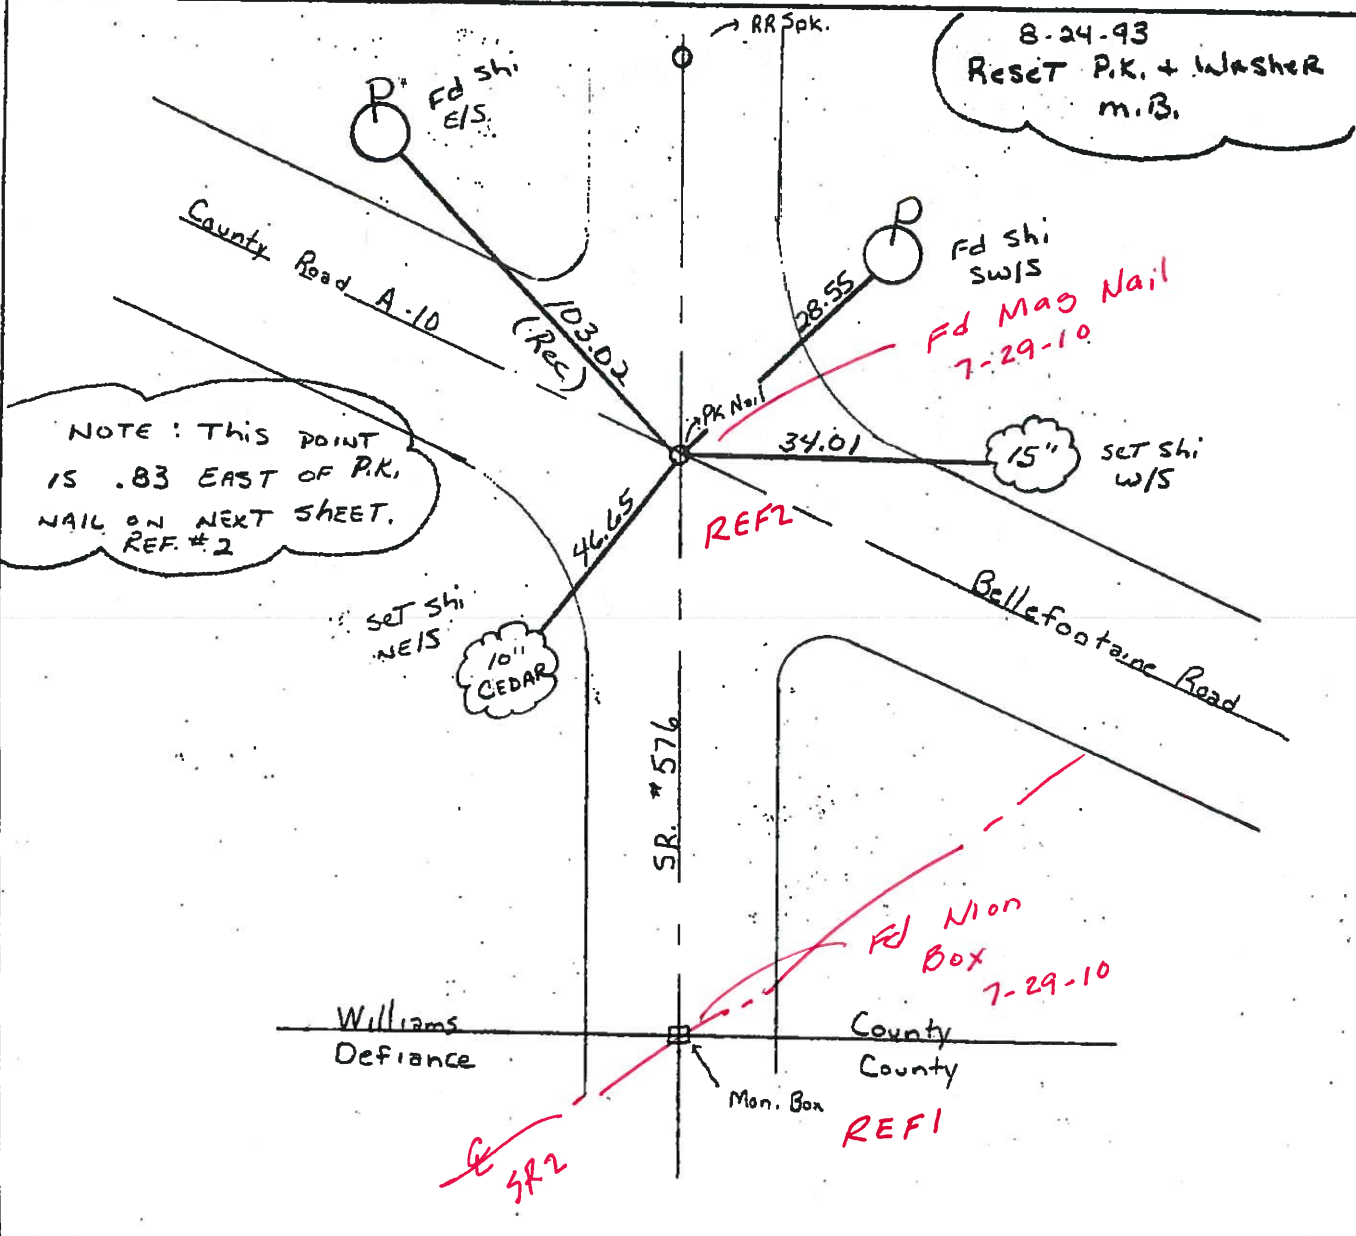 RR Spk.
8-24-93
ReseT P.K. + WasheR
m.B.
P
Fd shi
E/S
P
Fd shi
SW/S
28.55
Fd Mag Nail
7-29-10
County Road A-10
103.02
(Rec)
PK Nail
34.01
15"
seT shi
W/S
NOTE: This POINT
IS .83 EAST OF P.K.
NAIL ON NEXT SheeT.
REF. #2
REF2
46.65
seT shi
NE/S
10"
CEDAR
Bellefontaine Road
SR. #576
Fd Mon
Box
7-29-10
Williams County
Defiance County
Mon. Box
REF1
℄
SR2